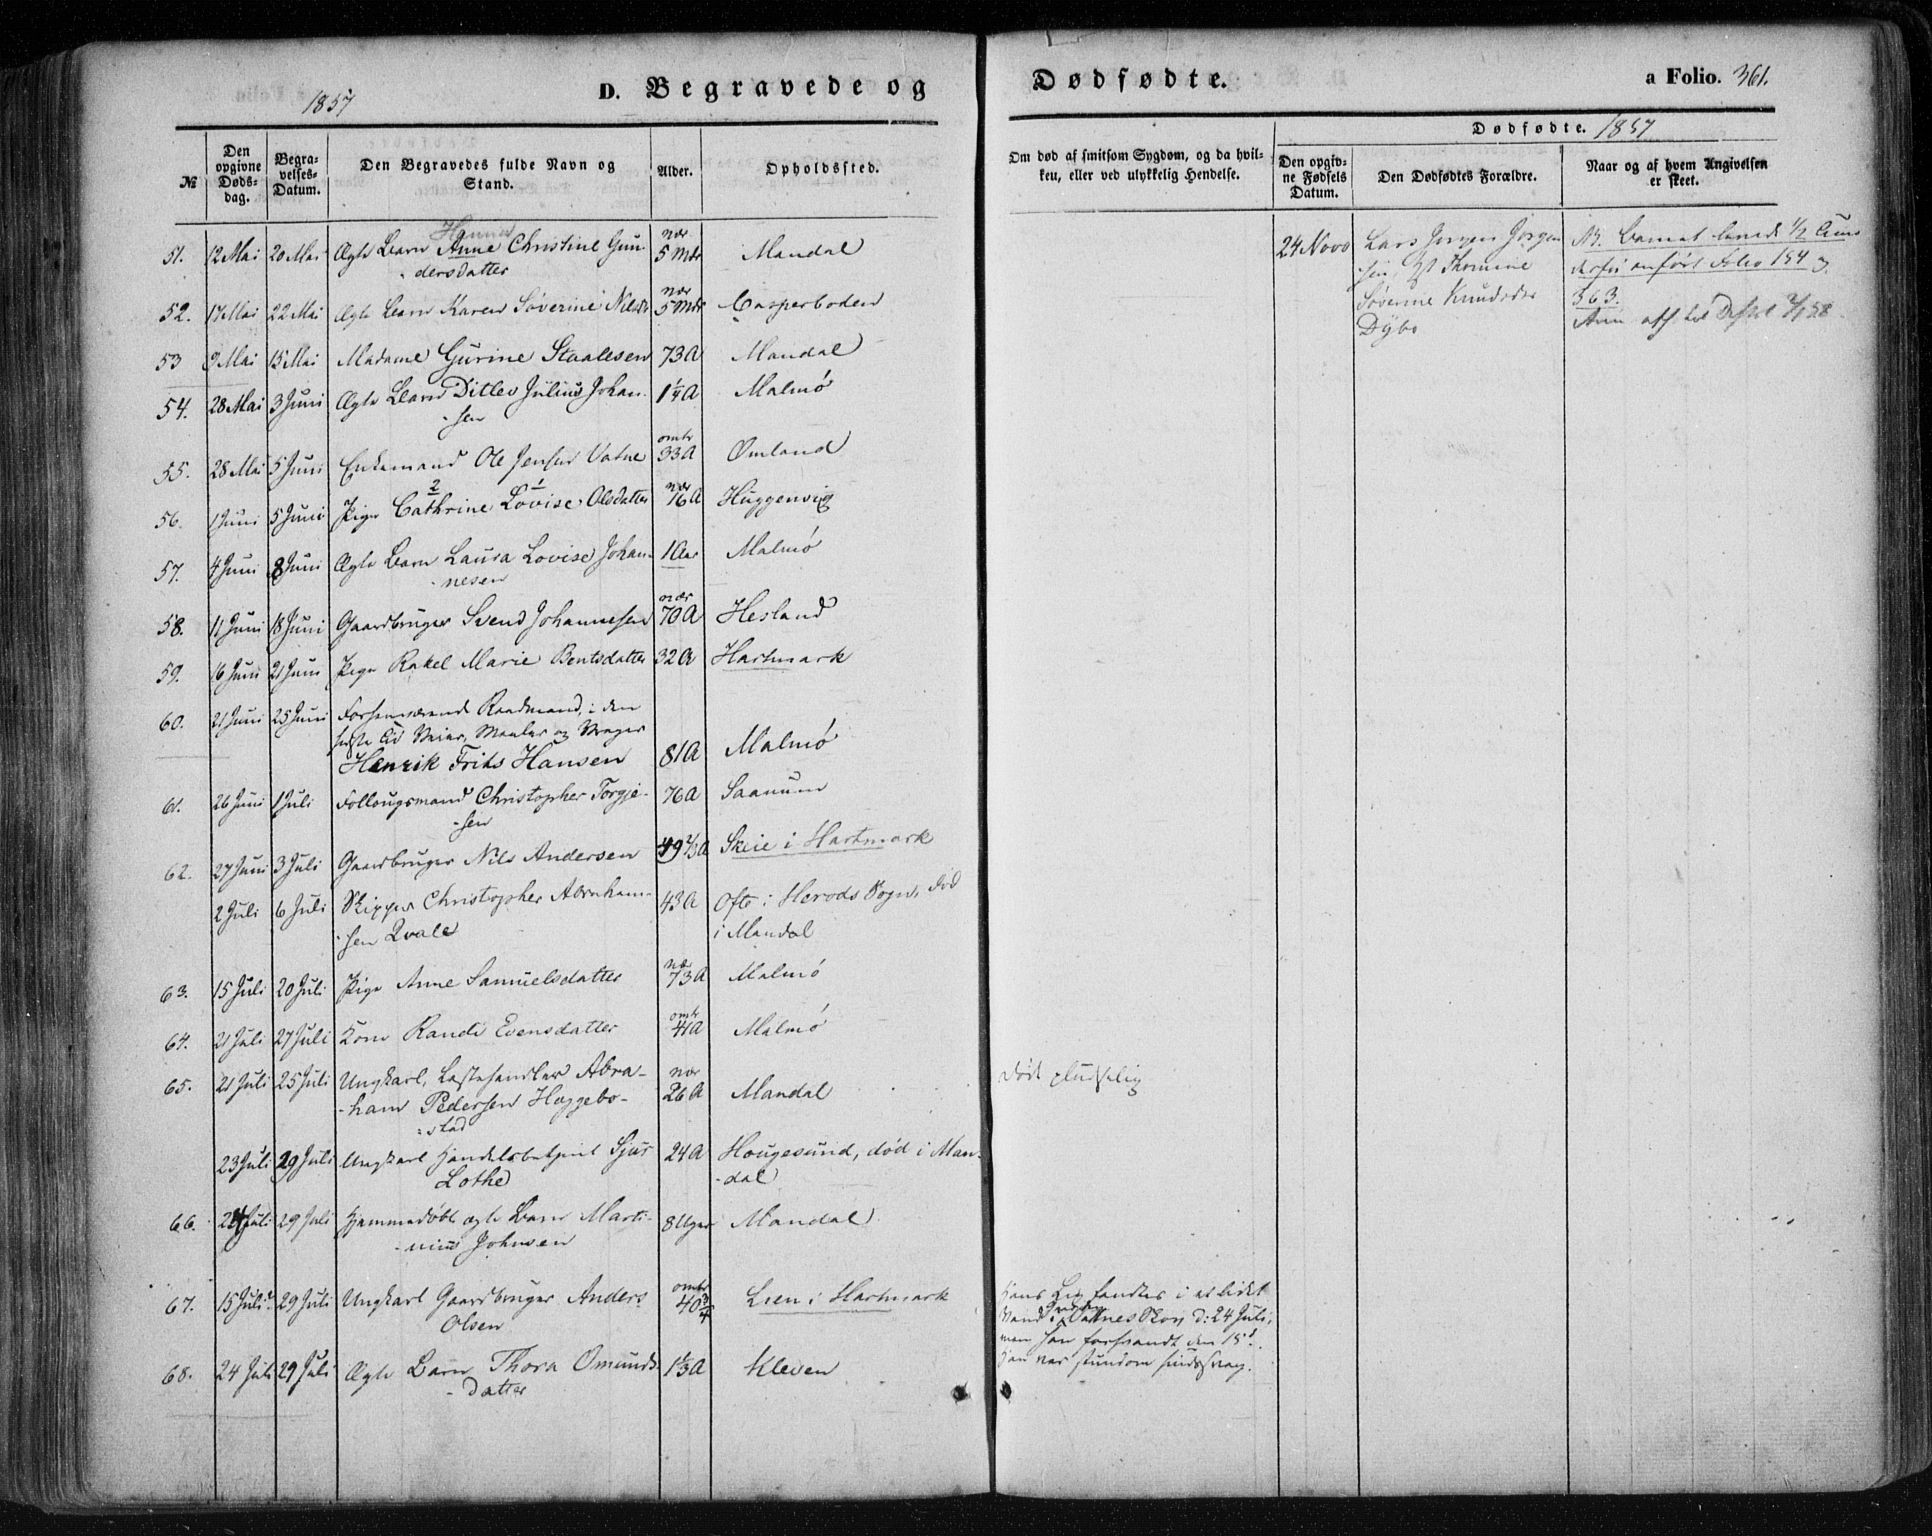 1857
D. Begravede og
Dødfødte.
a Folio. 361.
№
Den opgivne Døds-dag.
Begra-velses-Datum.
Den Begravedes fulde Navn og Stand.
Alder.
Opholdssted.
Om død af smitsom Sygdom, og da hvil-ken, eller ved ulykkelig Hendelse.
Dødfødte. 1857
Den opgiv-ne Fødsels Datum.
Den Dødfødtes Forældre.
Naar og af hvem Angivelsen er skeet.
Hanna
51. 12 Mai 20 Mai Ægte Barn Anne Christine Gun- nær 5 Mdr Mandal
dersdatter
24 Novb Lars Jørgen Jørgen-
sen, Thomine
Søverine Knudsdr
Dybo
anført Folio 154 og
363.
52. 17 Mai 22 Mai Ægte Barn Karen Søverine Nilsdr nær 5 Mdr Casperboden
53 9 Mai 15 Mai Madame Gurine Staalesen 73 A Mandal
54. 28 Mai 3 Juni Ægte Barn Ditlev Julius Johan- 1¼ A Malmø
sen
55. 28 Mai 5 Juni Enkemand Ole Jensen Vatne omtr 33 A Ømland
2 1
56. 1 Juni 5 Juni Pige Cathrine Lovise Olsdatter nær 16 A Huggenvig
57. 4 Juni 8 Juni Ægte Barn Laura Lovise Johan- 1 Aar Malmø
nesen
58. 11 Juni 18 Juni Gaardbruger Svend Johannesen nær 70 A Hesland
59. 16 Juni 21 Juni Pige Rakel Marie Bentsdatter 32 A Hartmark
60. 21 Juni 25 Juni Forhenværende Raadmand, i den
sidste Tid Veier, Maaler og Vrager
Henrik Frits Hansen 81 A Malmø
61. 26 Juni 1 Juli Follougsmand Christopher Torgje- 76 A Saanum
sen
62. 27 Juni 3 Juli Gaardbruger Nils Andersen 49⅔ A Skeie i Hartmark
2 Juli 6 Juli Skipper Christopher Abraham- 43 A Ofte i Herods Sogn, død
sen Qvale i Mandal
63. 15 Juli 20 Juli Pige Anne Samuelsdatter nær 73 A Malmø
64. 21 Juli 27 Juli Kone Randi Evensdatter omtr 41 A Malmø
65. 21 Juli 25 Juli Ungkarl, Lastehandler Abra- nær 26 A Mandal død pludselig
ham Pedersen Heggebo-
stad
23 Juli 29 Juli Ungkarl Handelsbetjent Sjur 24 A Hougesund, død i Man-
Lothe dal
66. 24 Juli 29 Juli Hjemmedøbt ægte Barn Marti- 8 Uger Mandal
nius Johnsen
67. 15 Juli 29 Juli Ungkarl Gaardbruger Anders omtr 40¾ Lien i Hartmark
Olsen
Hans Lig fandtes i et lidet
Vand i Vatnes Skov d: 24 Juli,
men han forsvandt den 15d.
Han var stundom sindssvag.
68. 24 Juli 29 Juli Ægte Barn Thora Omunds- 1⅓ A Kleven
datter